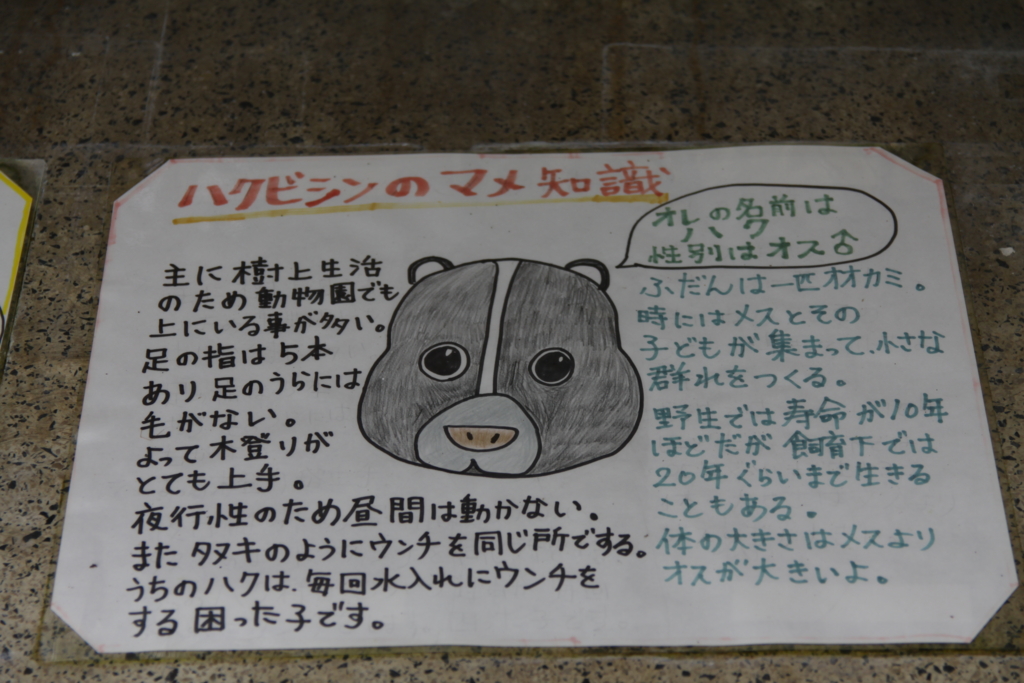 ハクビシンのマメ知識
主に樹上生活
のため動物園でも
上にいる事が多い。
足の指は5本
あり足のうらには
毛がない。
よって木登りが
とても上手。
夜行性のため昼間は動かない。
またタヌキのようにウンチを同じ所でする。
うちのハクは、毎回水入れにウンチを
する困った子です。
オレの名前は
ハク
性別はオス♂
ふだんは一匹オオカミ。
時にはメスとその
子どもが集まって、小さな
群れをつくる。
野生では寿命が10年
ほどだが飼育下では
20年ぐらいまで生きる
こともある。
体の大きさはメスより
オスが大きいよ。